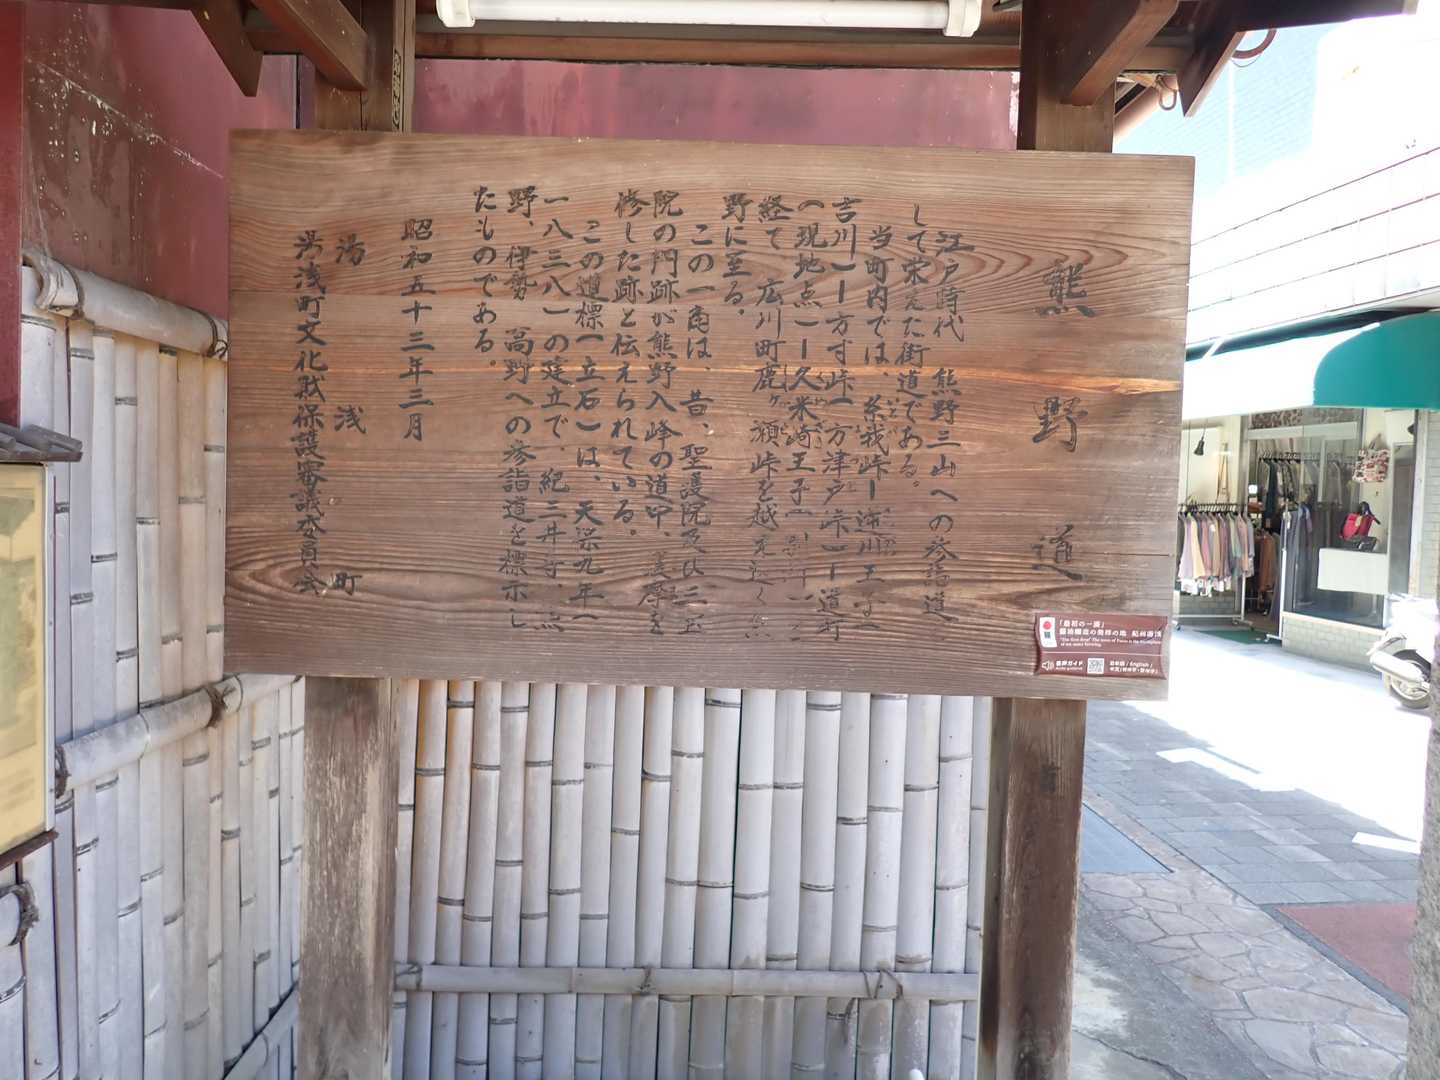 熊野道
江戸時代 熊野三山への参詣道
して栄えた街道である。
当町内では、糸我峠ー逆川王子(
吉川)ー方寸峠(方津戸峠)ー道町
(現地点)ー久米崎王子
経て 広川町鹿ヶ瀬峠を越え
野に至る。
この一角は、昔、聖護院及び三宝
院の門跡が熊野入峰の道中、護摩を
修した跡と伝えられている。
この道標(立石)は、天保九年(
一八三八)の建立で、紀三井寺、
野、伊勢 高野への参詣道を標示し
たものである。
昭和五十三年三月
湯浅町
湯浅町文化財保護審議委員会
「最初の一滴」
醤油醸造の発祥の地 紀州湯浅
音声ガイド
日本語 / English /